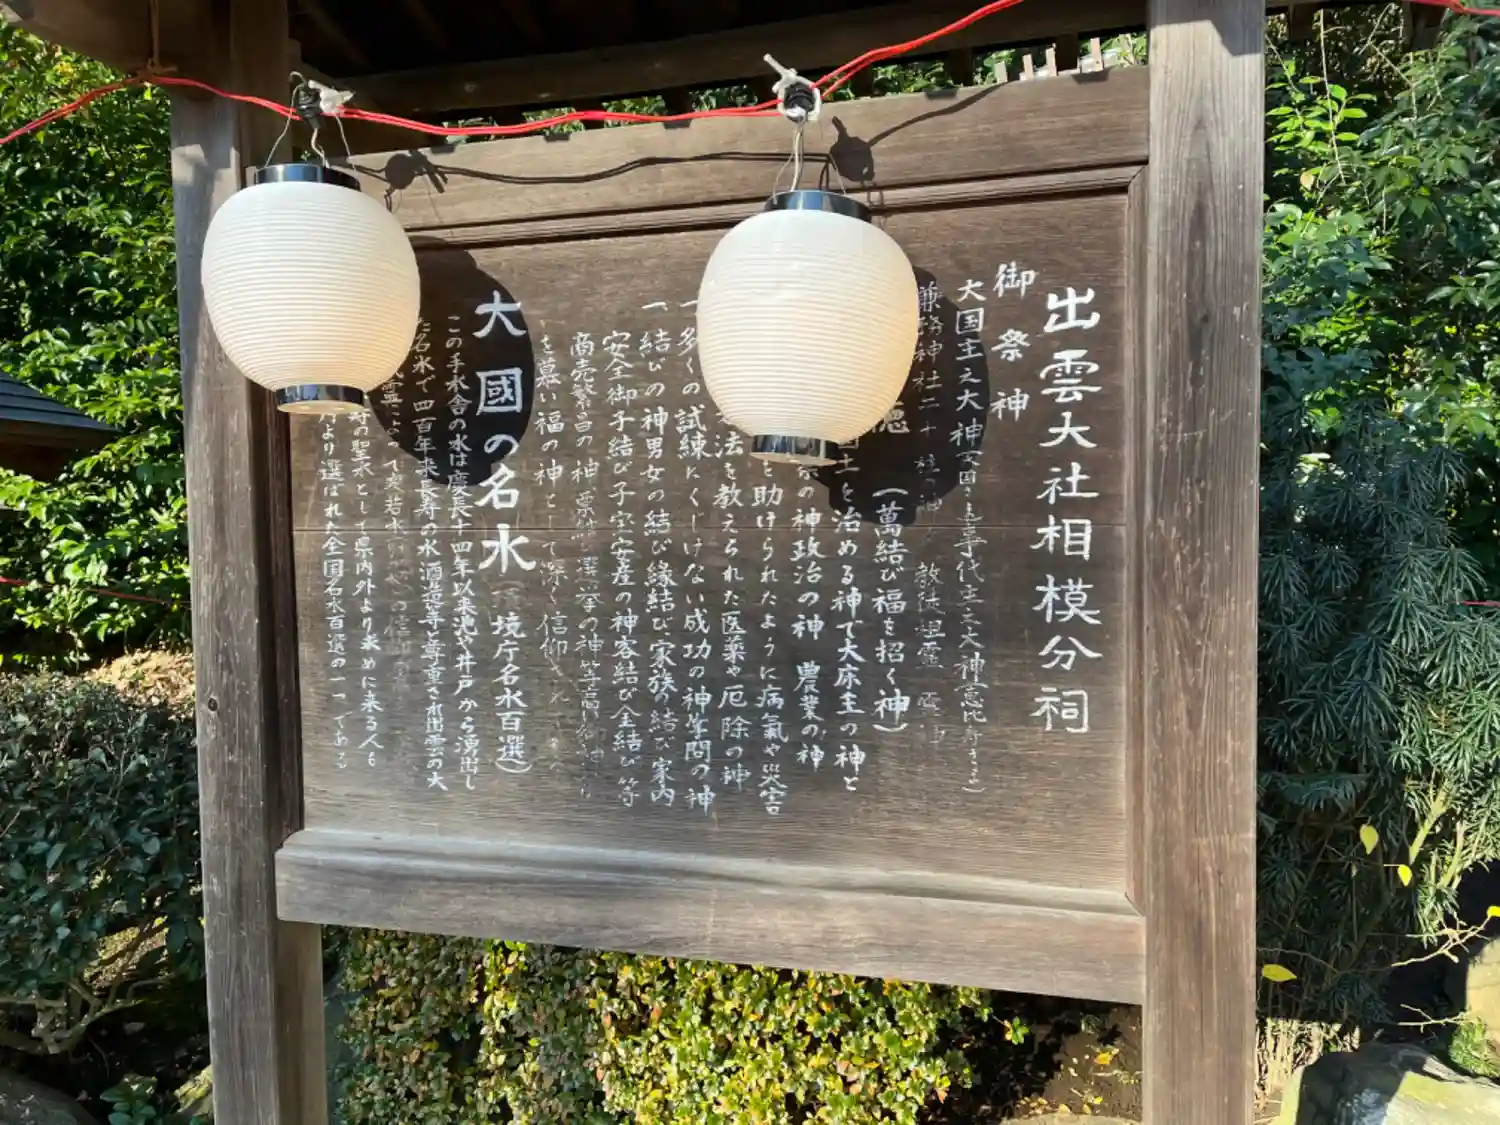 出雲大社相模分祠
御祭神
大国主之大神 事代主之大神
兼務神社二十 柱の神 教徒祖霊
徳 (萬結び福を招く神)
国土を治める神で大床主の神と
の神政治の神 農業の神
を助けられたように病氣や災害
法を教えられた医薬や厄除の神
一、多くの試練にくじけない成功の神学問の神
一、結びの神男女の結び縁結び家族の結び家内
安全御子結び子宝安産の神客結び全結び等
商売繁昌の神 選挙の神等
を慕い福の神として深く信仰されて
大國の名水(境庁名水百選)
この手水舎の水は慶長十四年以来池や井戸から湧出し
た名水で四百年来長寿の水酒造等と尊重され出雲の大
霊によって
寿の聖水として県内外より求めに来る人も
より選ばれた全国名水百選の一つである